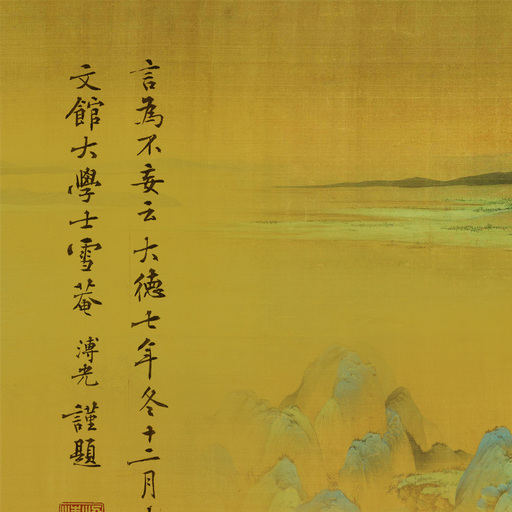 言為不妄云大德七年冬十二月
文館大學士雪菴溥光謹題